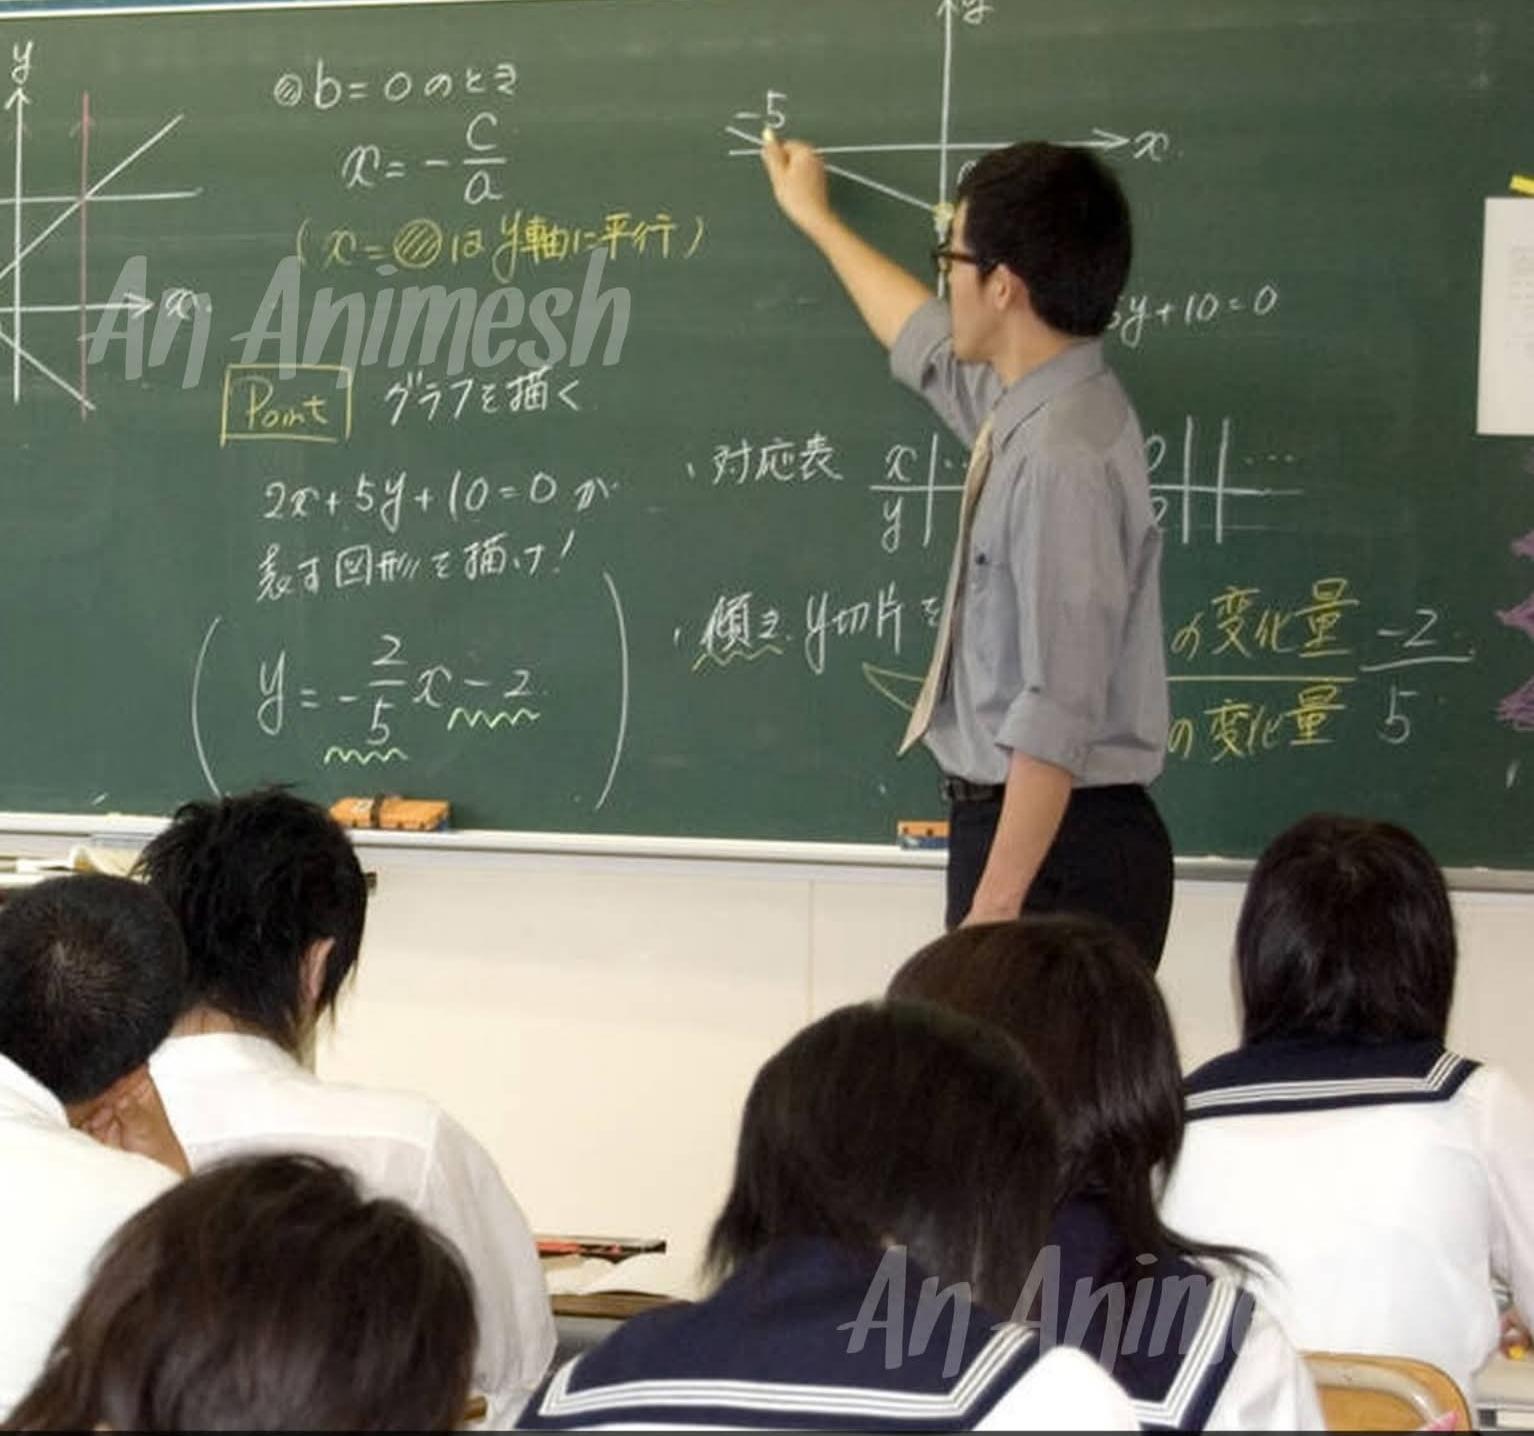 y
b=0のとき
x=-c/a
(x=は y軸に平行)
x
An Animesh
Point グラフを描く
2x+5y+10=0 が
表す図形を描け!
y=-2/5x-2
y
-5
x
5y+10=0
・対応表 x ...
y
・傾き、y切片を
の変化量 -2
の変化量 5
An Anim